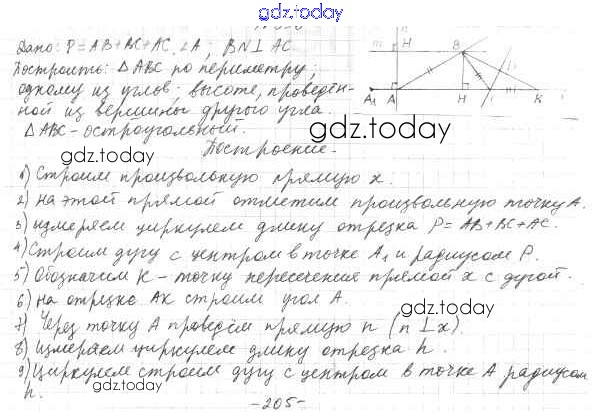 gdz.today
Дано: P=AB+BC+AC, ∠A; BN⊥AC
Построить: △ABC по периметру,
одному из углов; высоте, проведён-
ной из вершины другого угла.
△ABC - остроугольный.
m H B
A₁ A H C K
gdz.today
gdz.today
Построение.
1) Строим произвольную прямую x.
2) на этой прямой отметим произвольную точку A.
3) измеряем циркулем длину отрезка P= AB+BC+AC.
gdz.today
4) Строим дугу с центром в точке A₁ и радиусом P.
5) Обозначим K - точку пересечения прямой x с дугой.
6) на отрезке AK строим угол A.
gdz.today
7) Через точку A проведём прямую n (n⊥x).
8) Измеряем циркулем длину отрезка h.
9) Циркулем строим дугу с центром в точке A радиусом
h.
gdz.today
-205-